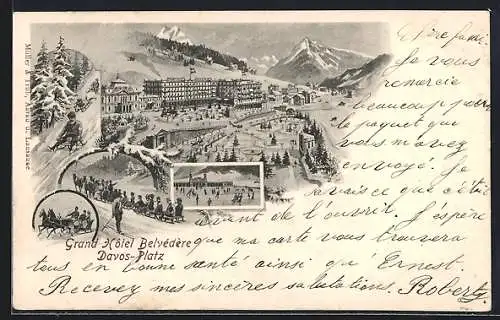 Chère famille.
Je vous
remercie
beaucoup pour
le paquet que
vous m'avez
envoyé. Je
savais que c'était
avant de l'ouvrir. J'espère
Grand Hôtel Belvédère
Davos-Platz
que ma carte vous trouvera
tous en bonne santé ainsi qu'Ernest.
Recevez mes sincères salutations. Robert
Müller &
Aarau u.